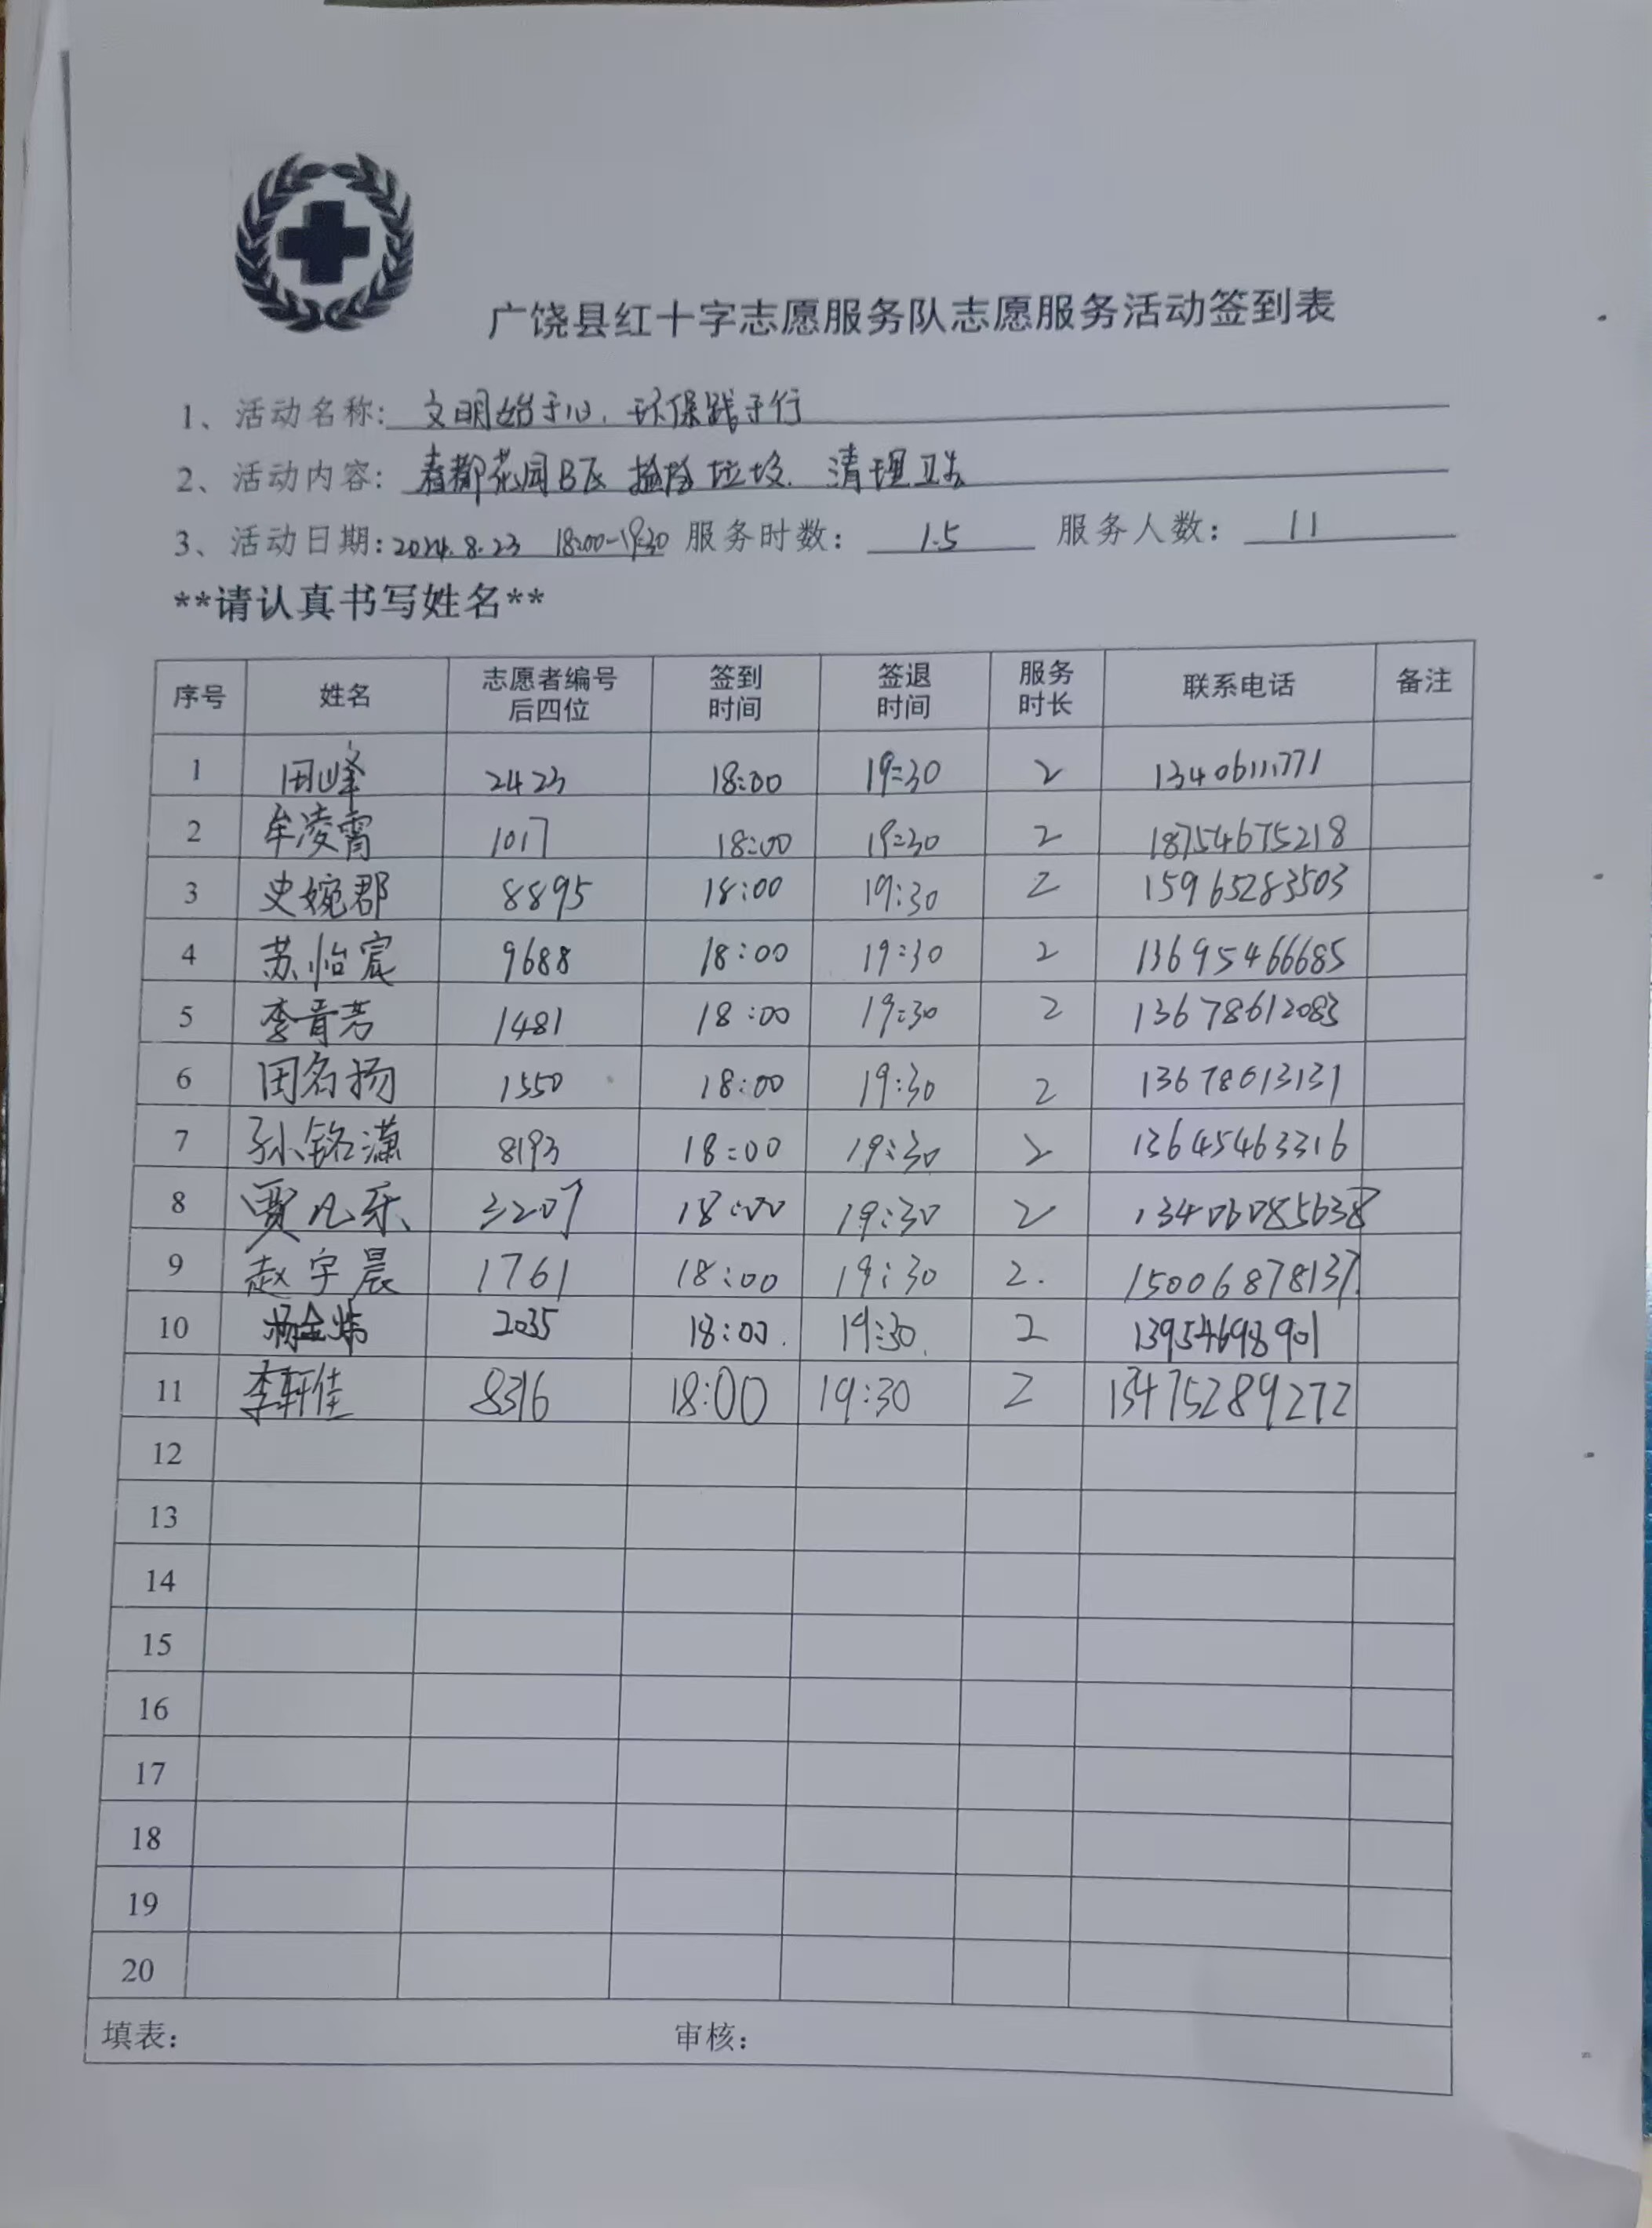 广饶县红十字志愿服务队志愿服务活动签到表
1、活动名称: 文明始于心，环保践于行
2、活动内容: 春都花园B区 捡拾垃圾. 清理卫生
3、活动日期: 2024.8.23 18:00-19:30 服务时数: 1.5 服务人数: 11
**请认真书写姓名**
序号 姓名 志愿者编号后四位 签到时间 签退时间 服务时长 联系电话 备注
1 田峰 2423 18:00 19:30 2 13406111771
2 牟凌霄 1017 18:00 19:30 2 18754675218
3 史婉郡 8895 18:00 19:30 2 15965283503
4 苏怡宸 9688 18:00 19:30 2 13695466685
5 李晋芳 1481 18:00 19:30 2 13678612083
6 田名扬 1550 18:00 19:30 2 13678613131
7 孙铭潇 8193 18:00 19:30 2 13645463316
8 贾凡乐 3207 18:00 19:30 2 13406085638
9 赵宇晨 1761 18:00 19:30 2. 15006878137
10 2035 18:00. 19:30. 2 13954698901
11 李轩佳 8316 18:00 19:30 2 13475289272
12
13
14
15
16
17
18
19
20
填表: 审核: